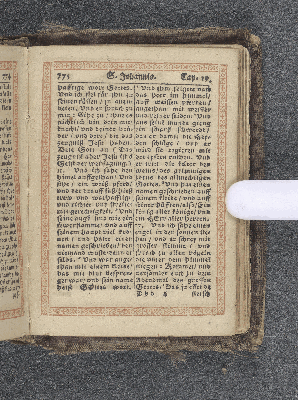 S. Johannis. Cap. 19.
hafftige wort Gottes.
Vnd ich fiel für ihn zu
seinen füssen / jn anzu
beten. Vnd er sprach zu
mir / Sihe zu / thu es
nicht / ich bin dein mit
knecht / vnd deiner brü
der / vnd deren / die das
zeugniß Jesu haben.
Bete Gott an /
Geist der weissagung /
Vnd ich sahe den
himel auffgethan / Vnd
sihe / ein weiß pferd /
vnd der darauff saß / hieß
vnd richtet vnd streitet
mit gerechtigkeit. Vnd
seine augen sind wie ein
fewerflamme / vnd auff
seinem haupt viel kro
nen / vnd hatte einen
namen geschrieben / den
niemand wuste denn er
selbs. Vnd war ange
than mit einem Kleide /
das mit blut besprenget
war / vnd sein name
heist Gottes wort.
Vnd ihm folgete nach
das heer im himmel /
auff weissen pferden /
angethan mit weisser
vnd reiner seiden / Vnd
auß seinem munde gieng
ein scharff schwerdt /
das er damit die Hey
den schlüge / vnd er
wird sie regieren mit
der eysern ruthen / Vnd
er tritt die kelter des
weins des grimmigen
zorns des allmechtigen
Gottes. Vnd hat einen
namen geschrieben auff
seinem kleide / vnd auff
seiner hüfften / also / Ein
König aller könige / vnd
ein HErr aller herren.
Vnd ich sahe einen
Engel in der Sonnen ste
hen / vnd er schrey mit
grosser stimme / vnd
sprach zu allen vögeln
die vnter dem himmel
fliegen / Kommet / vnd
versamlet euch zu dem
Abendmal des grossen
Gottes / Das jr esset das
fleisch